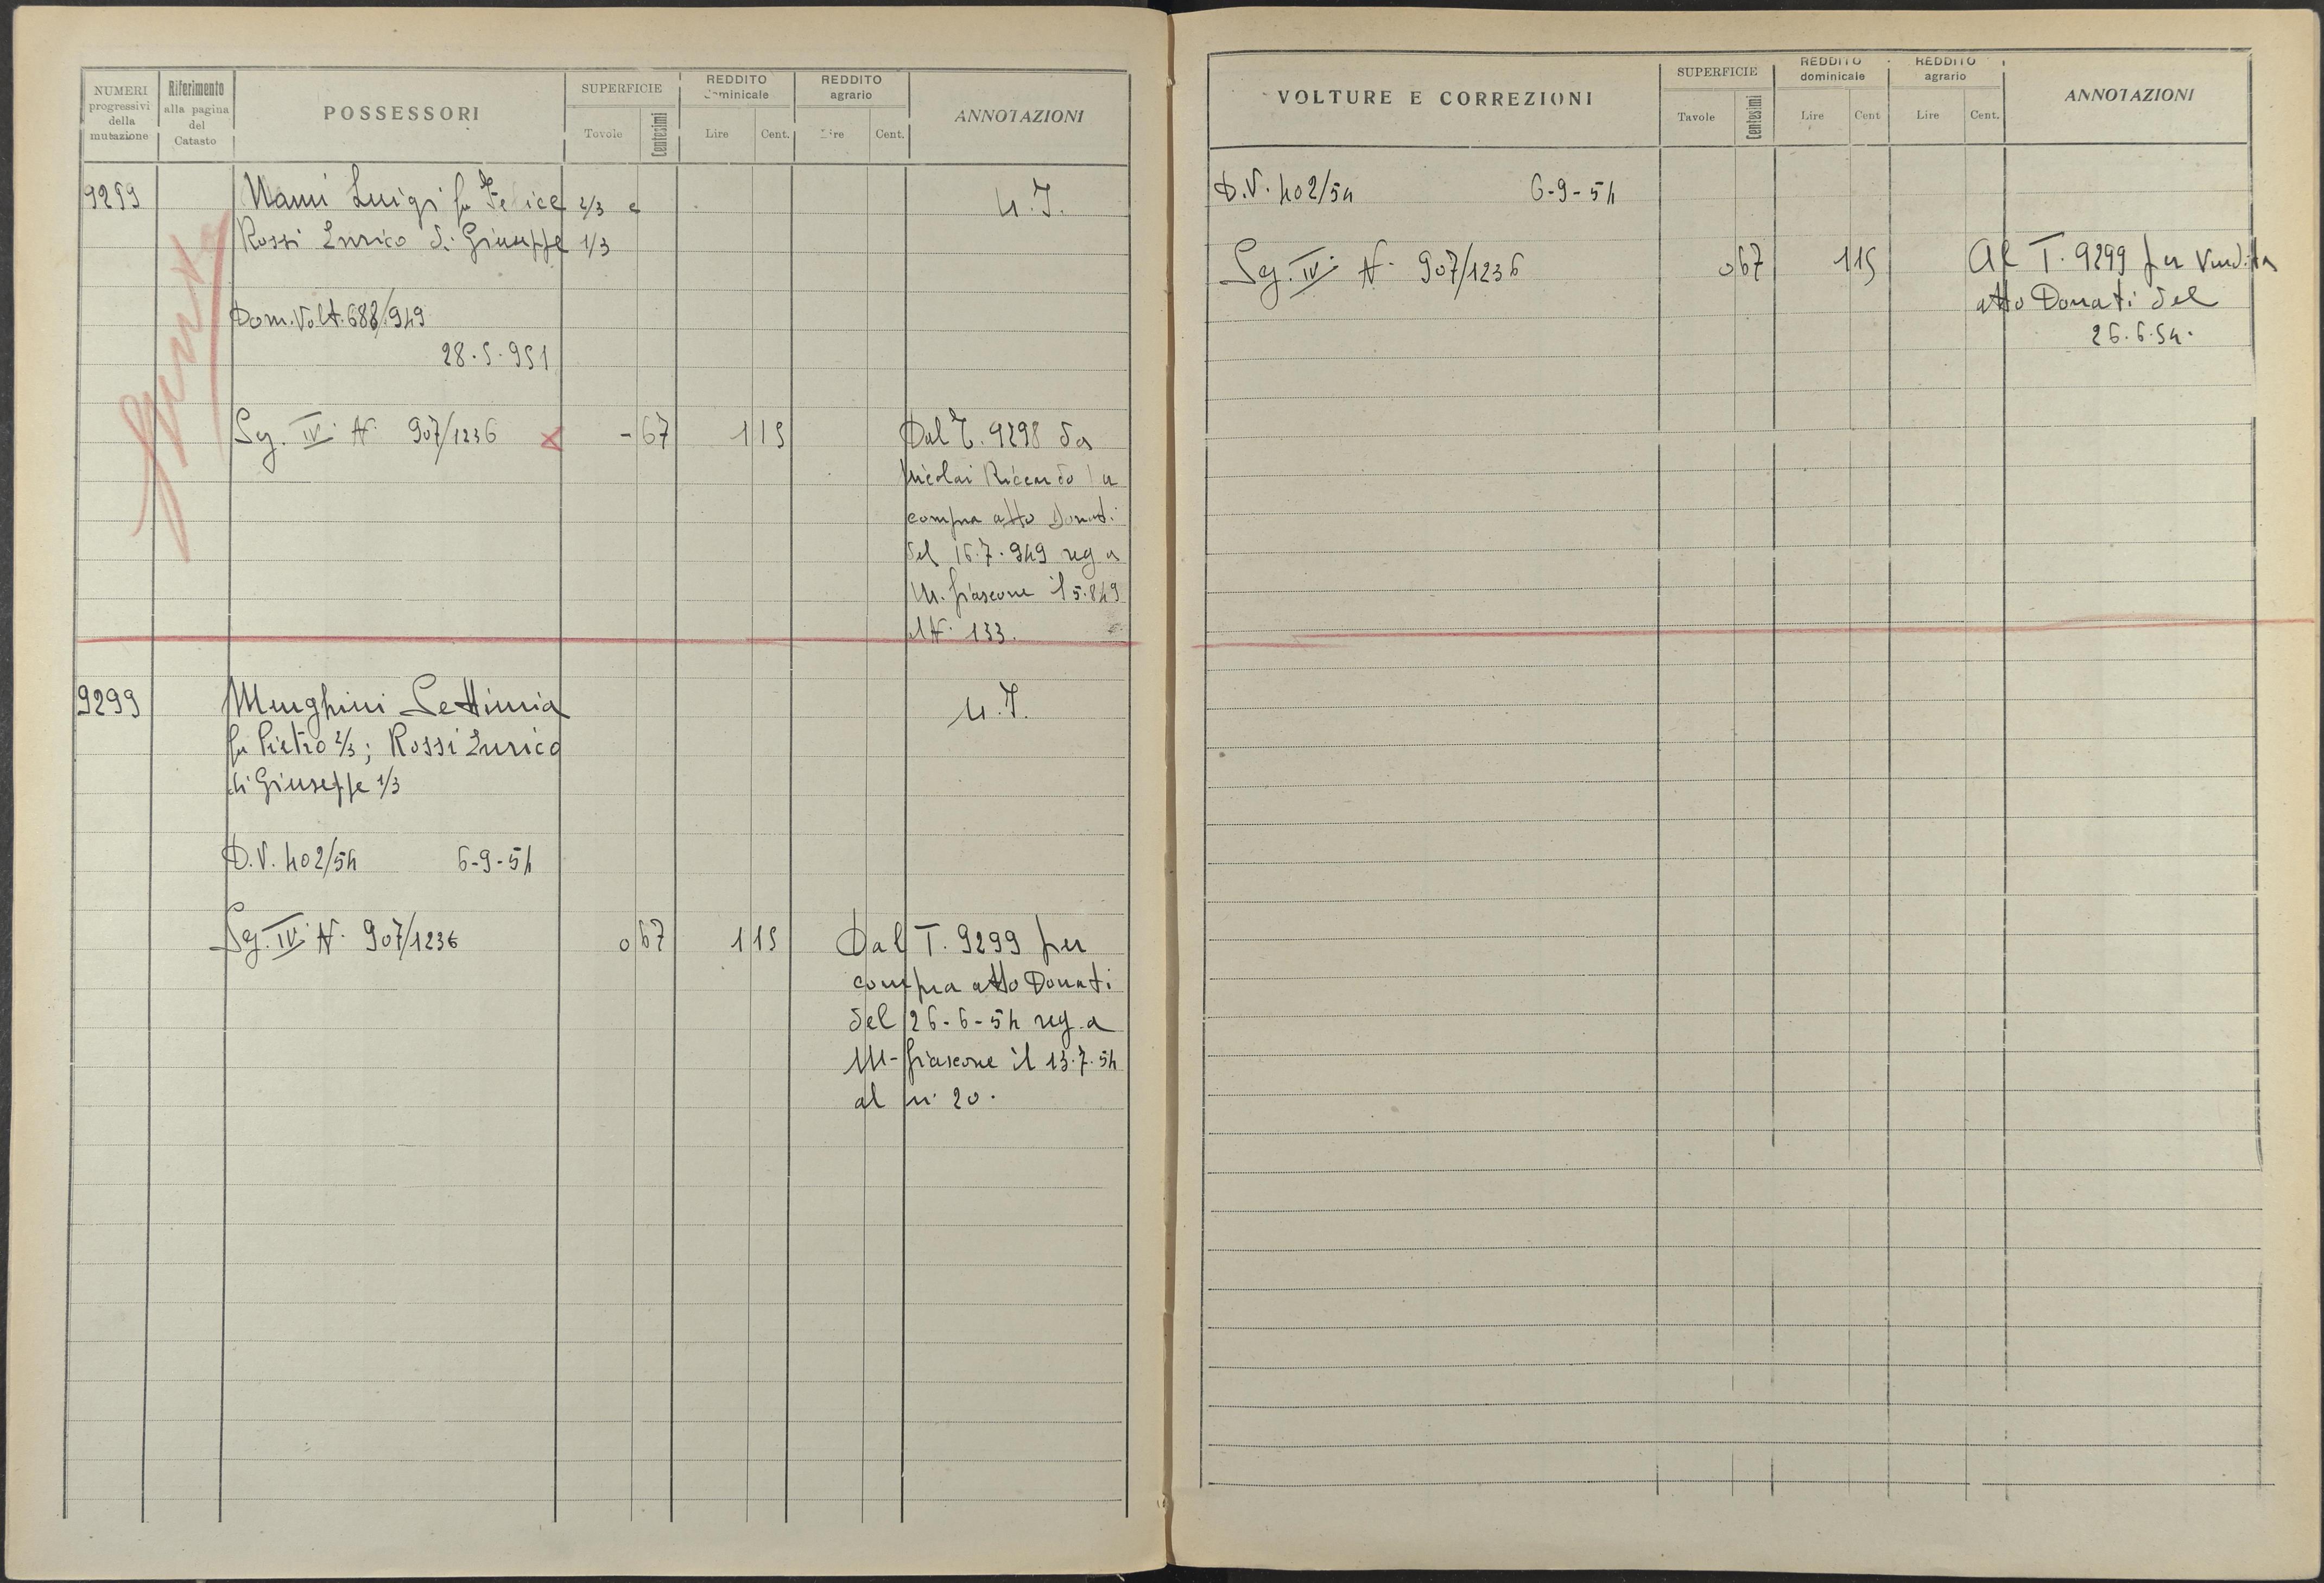 NUMERI progressivi della mutazione
Riferimento alla pagina del Catasto
POSSESSORI
SUPERFICIE
Tovole
Centesimi
REDDITO dominicale
Lire
Cent.
REDDITO agrario
Lire
Cent.
ANNOTAZIONI
9299
Nanni Luigi fu Felice 2/3 e
U.T.
Rossi Enrico di Giuseppe 1/3
Dom. Volt. 688/949
28.5.951
Sez. IV N. 907/1236 x - 67 1 15
Dal T. 9298 da
Nicolai Riccardo
compra atto Donati
del 16.7.949 reg a
M. fiascone il 5.8.49
al N. 133.
9299
Menghini Settimia
U.T.
fu Pietro 2/3; Rossi Enrico
di Giuseppe 1/3
D.V. 402/54 6-9-54
Sez. IV N. 907/1236 0 67 1 15
Dal T. 9299 per
compra atto Donati
del 26-6-54 reg. a
M-fiascone il 13.7.54
al n. 20.
VOLTURE E CORREZIONI
SUPERFICIE
Tavole
Centesimi
REDDITO dominicale
Lire
Cent
REDDITO agrario
Lire
Cent.
ANNOTAZIONI
D.V. 402/54 6-9-54
Sez. IV N. 907/1236 0 67 1 15
Al T. 9299 per vendita
atto Donati del
26.6.54.